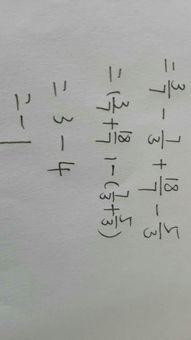 = 3/7 - 7/3 + 18/7 - 5/3
= (3/7 + 18/7) - (7/3 + 5/3)
= 3 - 4
= -1